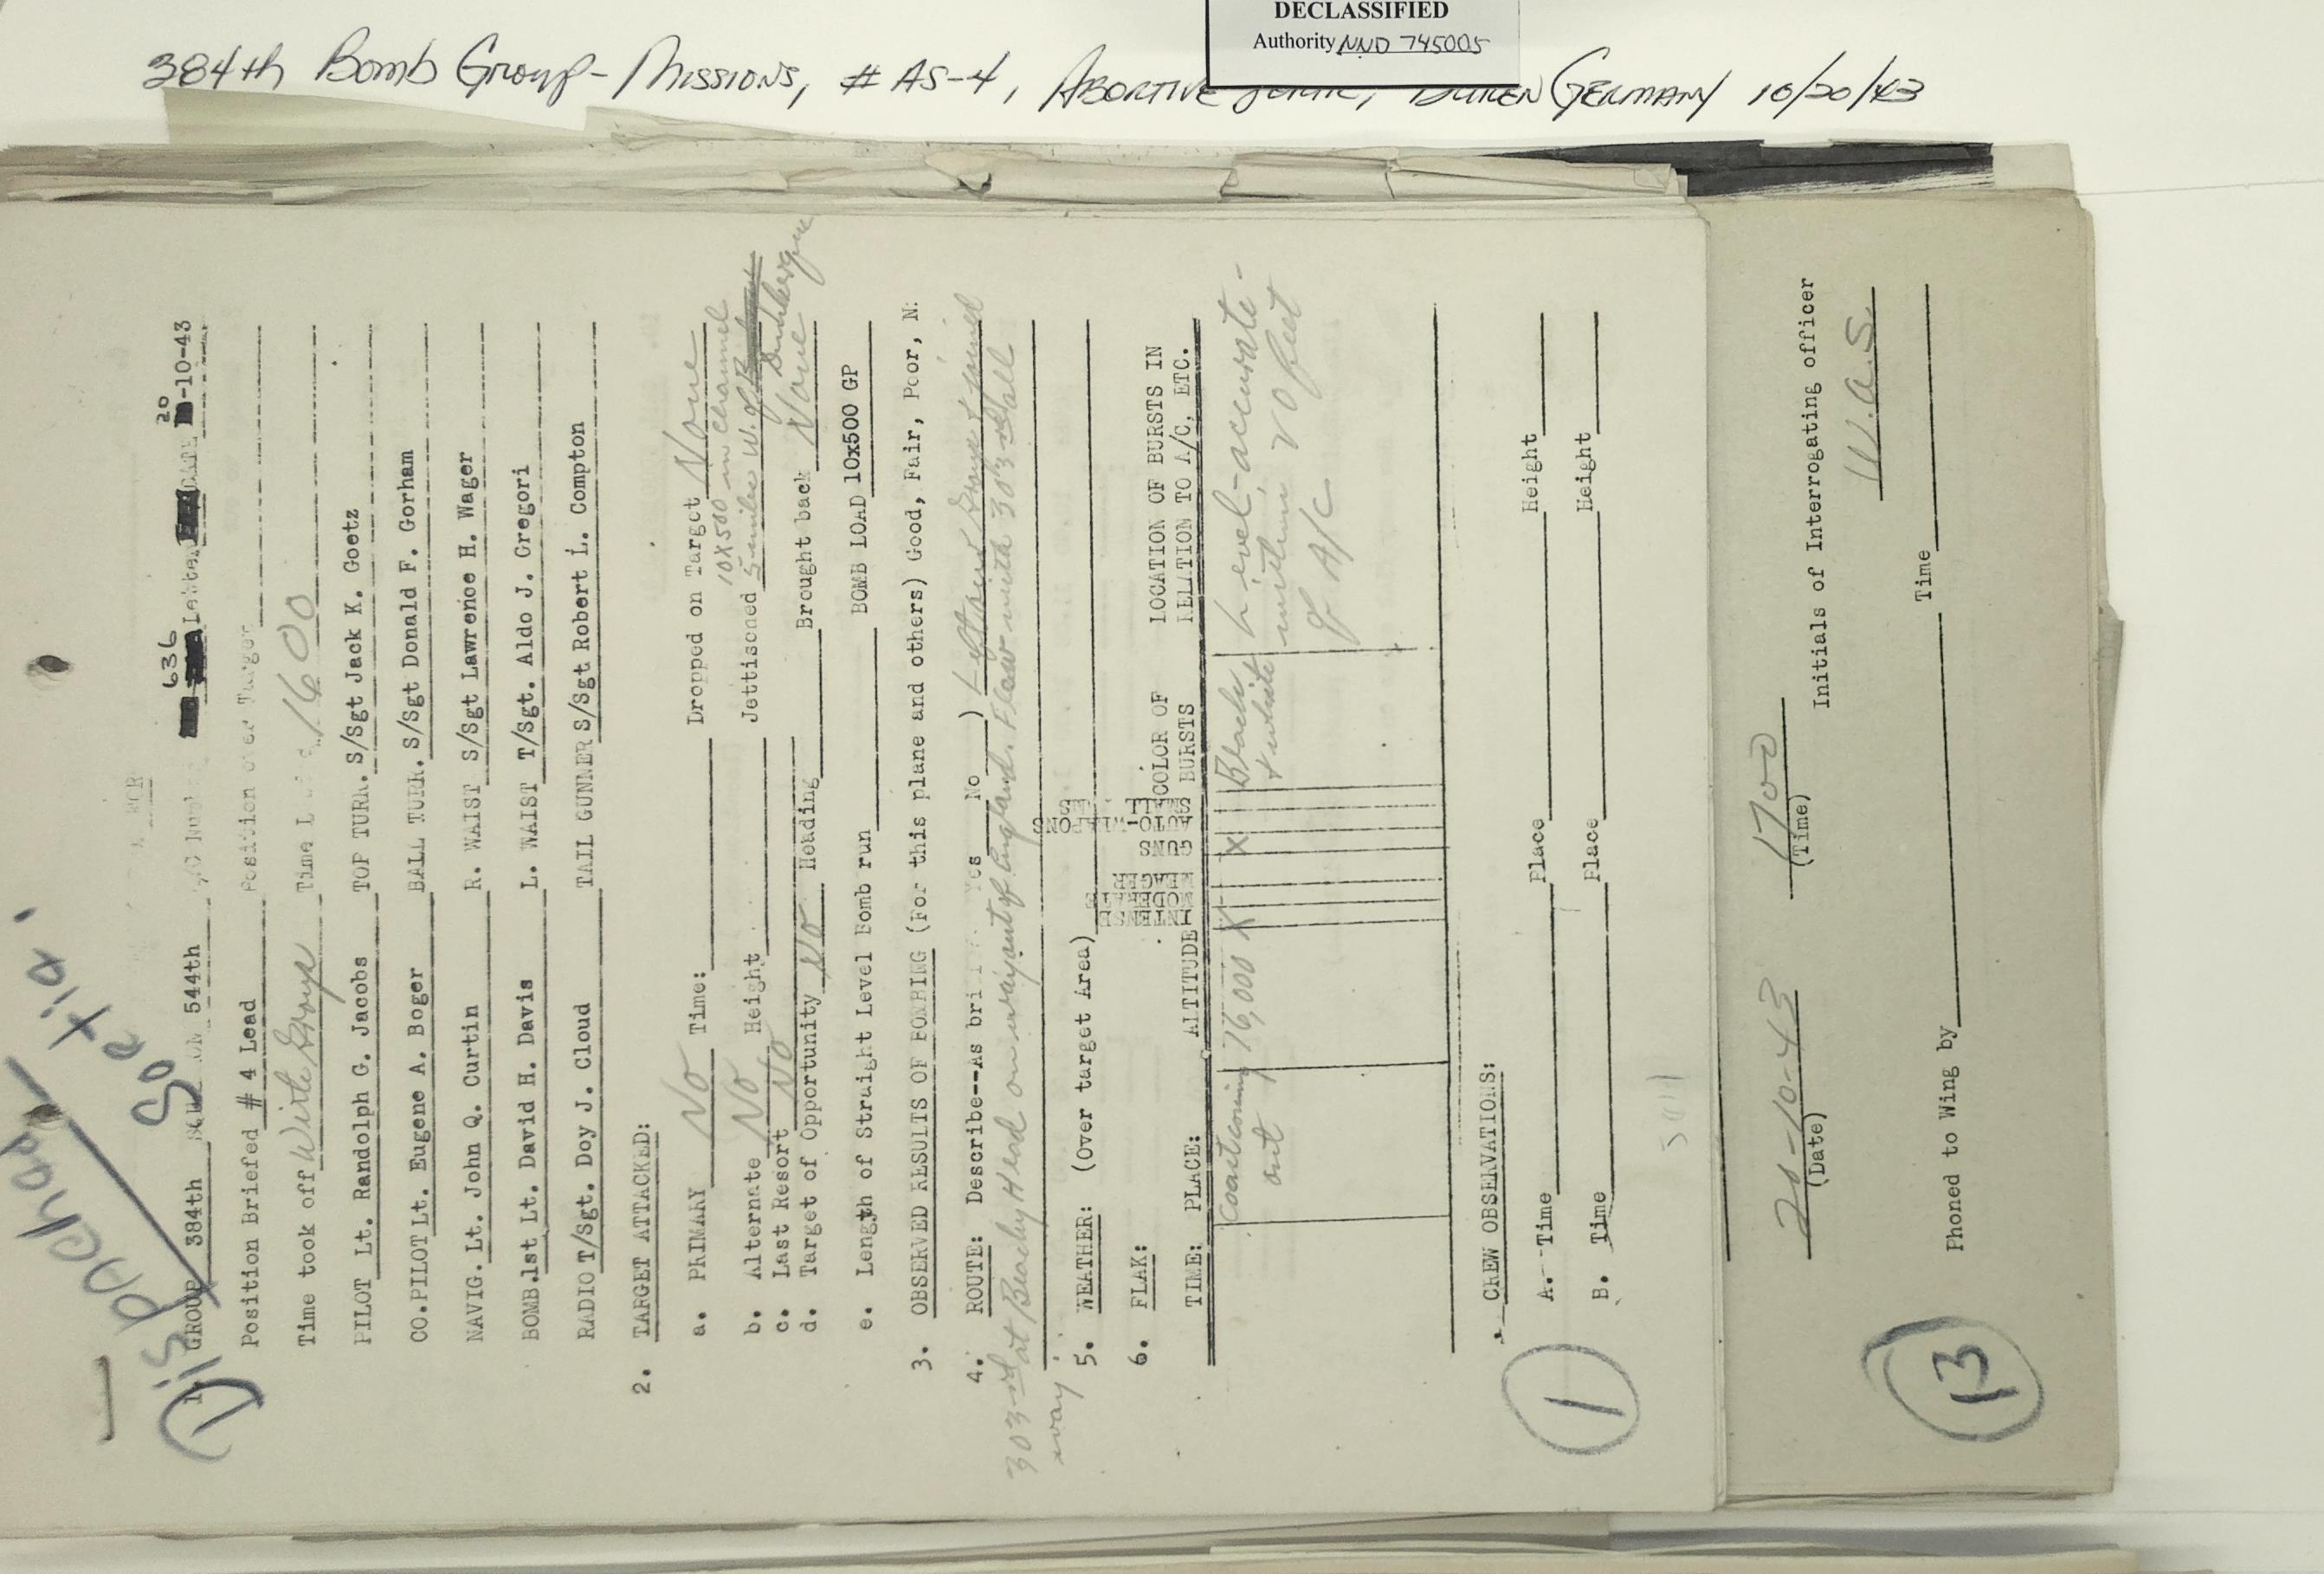 DECLASSIFIED
Authority NND 745005
384th Bomb Group - Missions, # AS-4, Abortive Germany 10/20/43
Dispached
Sortie
GROUP 384th 544th 636 Letter 20 -10-43
Position Briefed # 4 Lead Position over Target
Time took off With Group Time L 1600
PILOT Lt. Randolph G. Jacobs TOP TURR. S/Sgt Jack K. Goetz
CO.PILOT Lt. Eugene A. Boger BALL TURR. S/Sgt Donald F. Gorham
NAVIG. Lt. John Q. Curtin R. WAIST S/Sgt Lawrence H. Wager
BOMB. 1st Lt. David H. Davis L. WAIST T/Sgt. Aldo J. Gregori
RADIO T/Sgt. Doy J. Cloud TAIL GUNNER S/Sgt Robert L. Compton
2. TARGET ATTACKED:
a. PRIMARY No Time: Dropped on Target None
10X500 in channel
b. Alternate No Height Jettisoned 5 miles W. of
c. Last Resort No
d. Target of Opportunity No Heading Brought back None
e. Length of Straight Level Bomb run BOMB LOAD 10x500 GP
3. OBSERVED RESULTS OF BOMBING (For this plane and others) Good, Fair, Poor, N:
4. ROUTE: Describe--As Yes No ) Left and joined
303rd at Beachy Head on way out of England. Flew with 303rd all
way.
5. WEATHER: (Over target Area)
6. FLAK:
TIME: PLACE: ALTITUDE INTENSE MODERATE MEAGER GUNS AUTO-WEAPONS SMALL ARMS COLOR OF BURSTS LOCATION OF BURSTS IN RELATION TO A/C, ETC.
Coast coming 16,000 X X Black Level - accurate -
out & white within 20 feet
of A/C
CREW OBSERVATIONS:
A. Time Place Height
B. Time Place Height
1
20-10-43 1700
(Date) (Time) Initials of Interrogating officer
W.A.S.
Phoned to Wing by Time
13